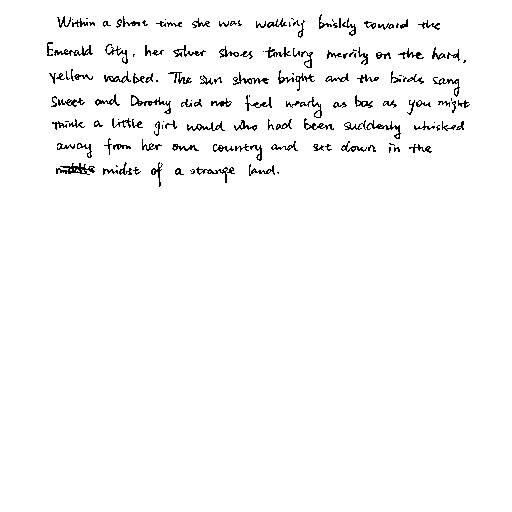 Within a short time she was walking briskly toward the
Emerald City, her silver shoes tinkling merrily on the hard,
yellow roadbed. The sun shone bright and the birds sang
sweet and Dorothy did not feel nearly as bas as you might
think a little girl would who had been suddenly whisked
away from her own country and set down in the
midst of a strange land.